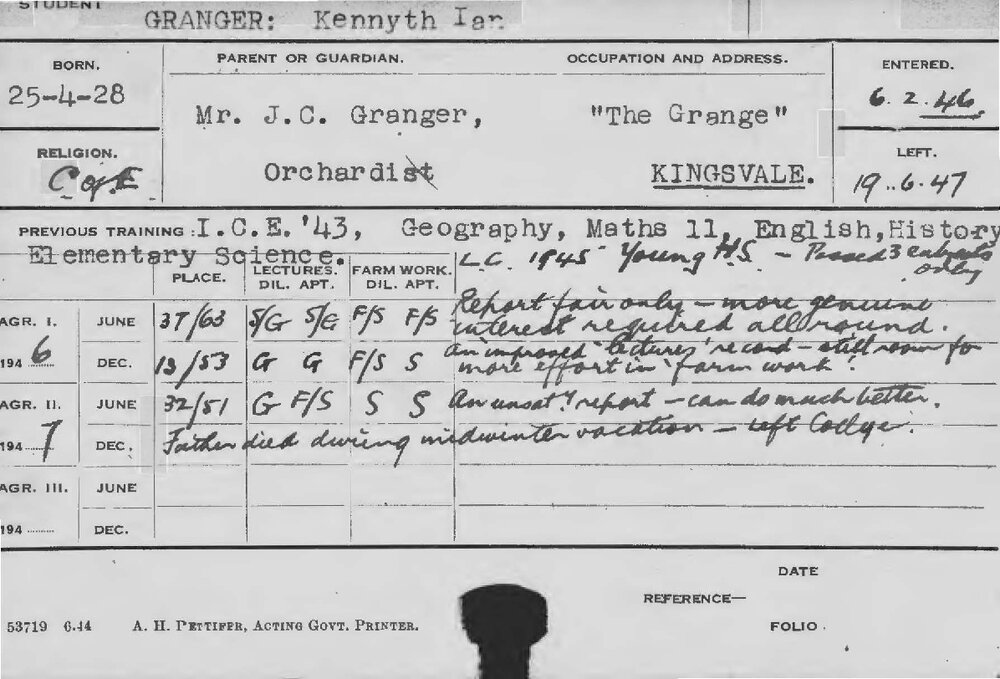 STUDENT
GRANGER: Kennyth Ian
BORN.
PARENT OR GUARDIAN.
OCCUPATION AND ADDRESS.
ENTERED.
25-4-28
Mr. J.C. Granger,
"The Grange"
6.2.46
RELIGION.
C of E
Orchardist
KINGSVALE.
LEFT.
19.6.47
PREVIOUS TRAINING: I.C.E. '43, Geography, Maths 11, English, History
Elementary Science.
L.C. 1945 Young H.S. - Passed 3 subjects
only
PLACE.
LECTURES.
DIL. APT.
FARM WORK.
DIL. APT.
AGR. I. JUNE 37/63 S/G S/G F/S F/S Report fair only - more genuine
interest required all round.
1946 DEC. 13/53 G G F/S S An improved "lectures" record - still room for
more effort in "farm work".
AGR. II. JUNE 32/51 G F/S S S An unsaty report - can do much better.
1947 DEC. Father died during midwinter vacation - left College.
AGR. III. JUNE
194 DEC.
DATE
REFERENCE—
FOLIO.
53719 6.44 A. H. PETTIFER, ACTING GOVT. PRINTER.